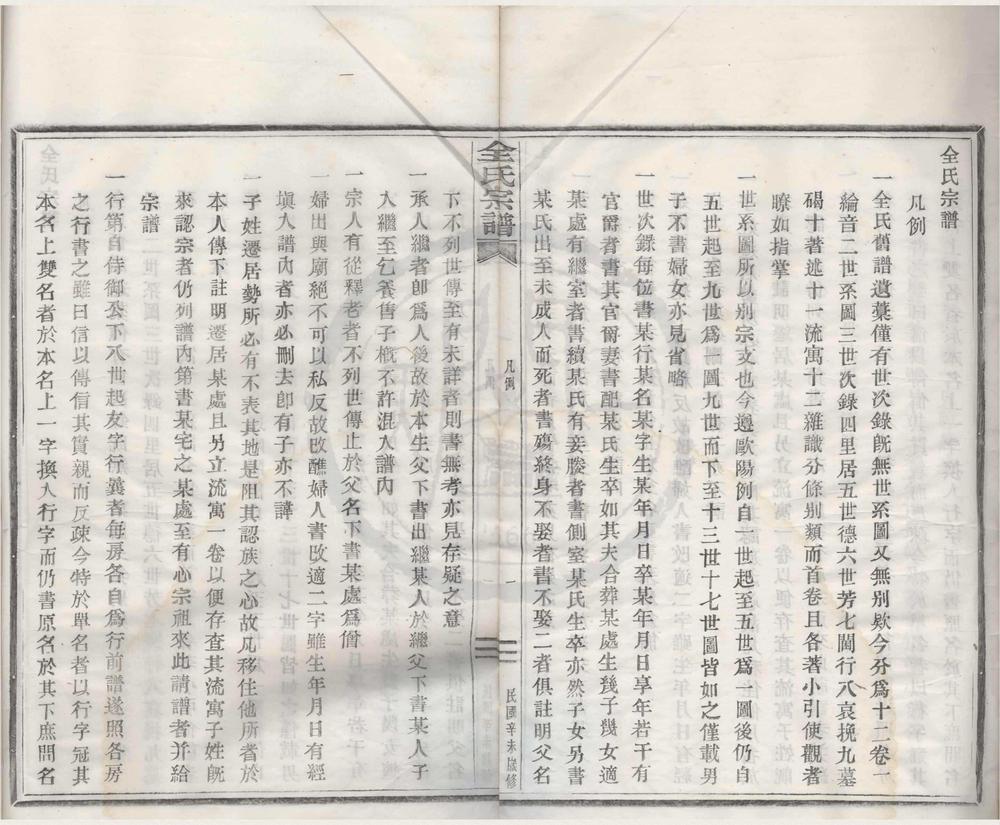 全氏宗譜
凡例
一全氏舊譜遺棄僅有世次錄旣無世系圖又無别欵今分爲十二卷一
綸音二世系圖三世次錄四里居五世德六世芳七閫行八哀挽九墓
碣十著述十一流寓十二雜識分條别類而首卷且各著小引使觀者
暸如指掌
一世系圖所以别宗支也今遵歐陽例自一世起至五世爲一圖後仍自
五世起至九世爲一圖九世而下至十三世十七世圖皆如之僅載男
子不書婦女亦見省略
一世次錄每位書某行某名某字生某年月日卒某年月日享年若干有
官爵者書其官爵妻書配某氏生卒如其夫合葬某處生幾子幾女適
某處有繼室者書續某氏有妾媵者書側室某氏生卒亦然子女另書
某氏出至未成人而死者書殤終身不娶者書不娶二者俱註明父名
全氏宗譜
凡例
一
民國辛未歲修
下不列世傳至有未詳者則書無考亦見存疑之意
一承人繼者卽爲人後故於本生父下書出繼某人於繼父下書某人子
入繼至乞養售子槪不許混入譜內
一宗人有從釋老者不列世傳止於父名下書某處爲僧
一婦出與廟絕不可以私反故改醮婦人書改適二字雖生年月日有經
塡入譜內者亦必刪去卽有子亦不諱
一子姓遷居勢所必有不表其地是阻其認族之心故凡移住他所者於
本人傳下註明遷居某處且另立流寓一卷以便存查其流寓子姓旣
來認宗者仍列譜內第書某宅之某處至有心宗祖來此請譜者并給
宗譜
一行第自侍御公下八世起友字行曩者每房各自爲行前譜遂照各房
之行書之雖曰信以傳信其實親而反疎今特於單名者以行字冠其
本名上雙名者於本名上一字換入行字而仍書原名於其下庶間名